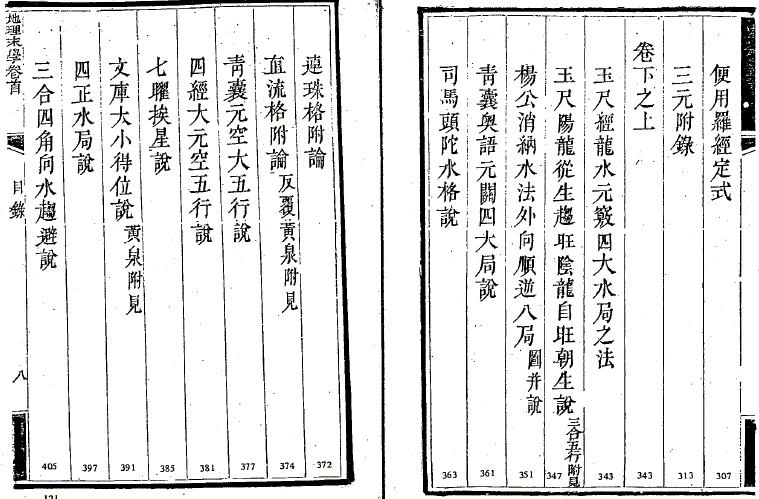 便用羅經定式 307
三元附錄 313
卷下之上 343
玉尺經龍水元竅四大水局之法 343
玉尺陽龍從生趨旺陰龍自旺朝生說 三合五行附見 347
楊公消納水法外向順逆八局 圖并說 351
青囊奧語元關四大局說 361
司馬頭陀水格說 363
連珠格附論 372
直流格附論 反覆黃泉附見 374
青囊元空大五行說 377
四經大元空五行說 381
七曜挨星說 385
文庫大小得位說 黃泉附見 391
四正水局說 397
三合四角向水趨避說 405
地理末學卷首
目錄
八